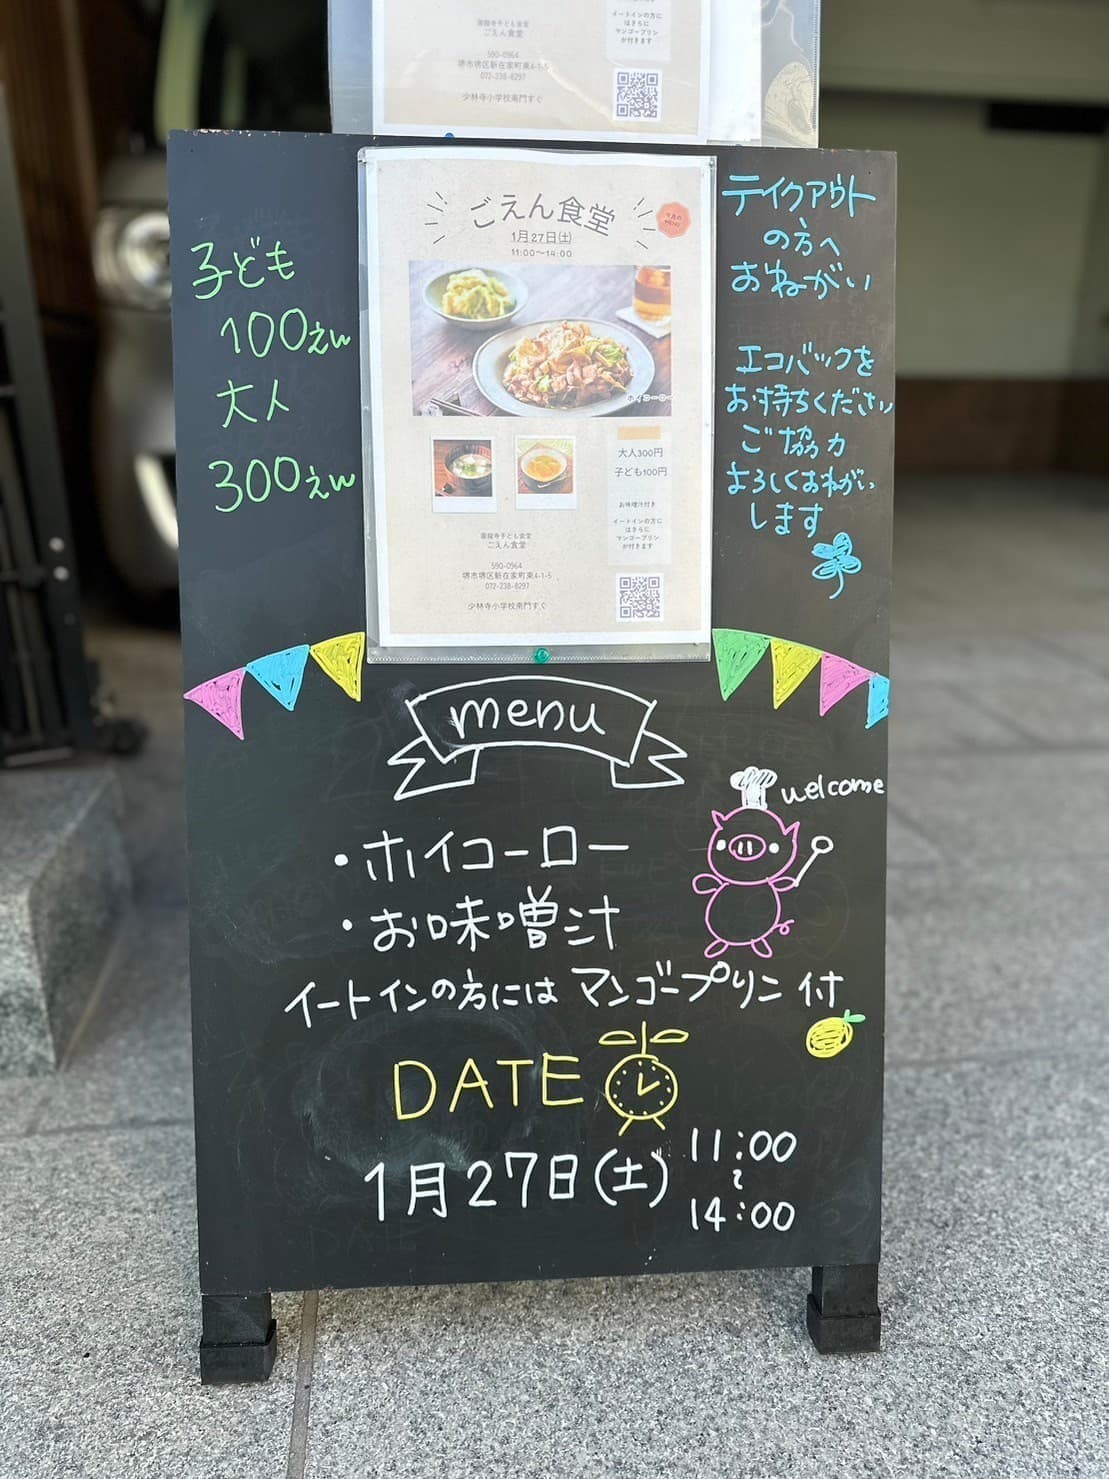 イートインの方に
はさらに
マンゴープリン
が付きます
ごえん食堂
590-0964
堺市堺区新在家町東4-1-5
072-238-8297
少林寺小学校南門すぐ
子ども
100えん
大人
300えん
ごえん食堂
1月27日(土)
11:00〜14:00
ホイコーロー
大人300円
子ども100円
お味噌汁付き
イートインの方に
はさらに
マンゴープリン
が付きます
ごえん食堂
590-0964
堺市堺区新在家町東4-1-5
072-238-8297
少林寺小学校南門すぐ
テイクアウト
の方へ
おねがい
エコバックを
お持ちください
ご協力
よろしくおねがい
します
menu
welcome
・ホイコーロー
・お味噌汁
イートインの方にはマンゴープリン付
DATE
1月27日(土) 11:00
〜
14:00